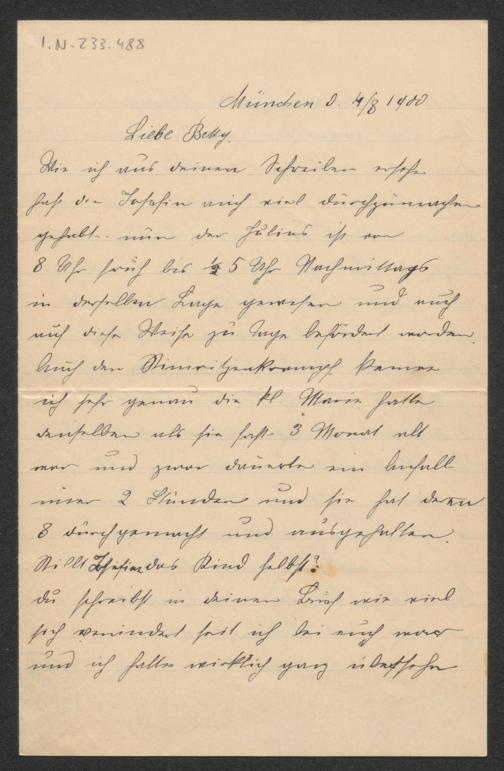 I.N. 233.488
München d. 4/8 1900
Liebe Betty.
Wie ich aus deinen Schreiben ersehe
hast die Josefin auch viel durchzumachen
gehabt nun der Julius ist von
8 Uhr früh bis ½ 5 Uhr Nachmittags
in derselben Lage gewesen und auch
auf diese Weise zu Tage befördert worden.
Auch den Stimmritzenkrampf kenne
ich sehr genau die kl. Marie hatte
denselben als sie fast 3 Monat alt
war und zwar dauerte ein Anfall
immer 2 Stunden und sie hat deren
8 durchgemacht und ausgehalten.
Stillt Josefine das Kind selbst?
du schreibst in deinen Brief wie viel
sich verändert seit ich bei euch war
und ich hatte wirklich ganz übersehen